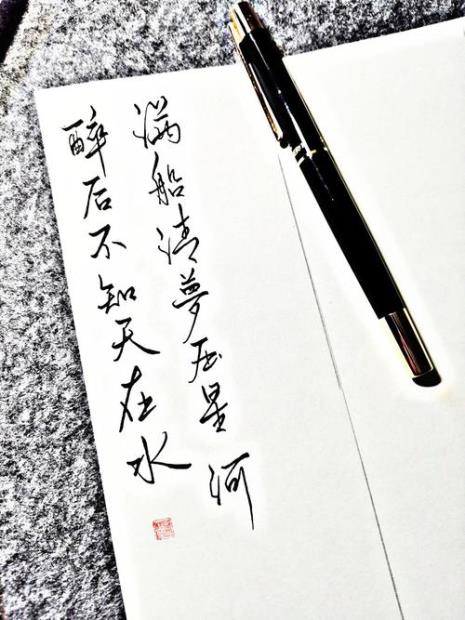 醉后不知天在水
满船清夢压星河